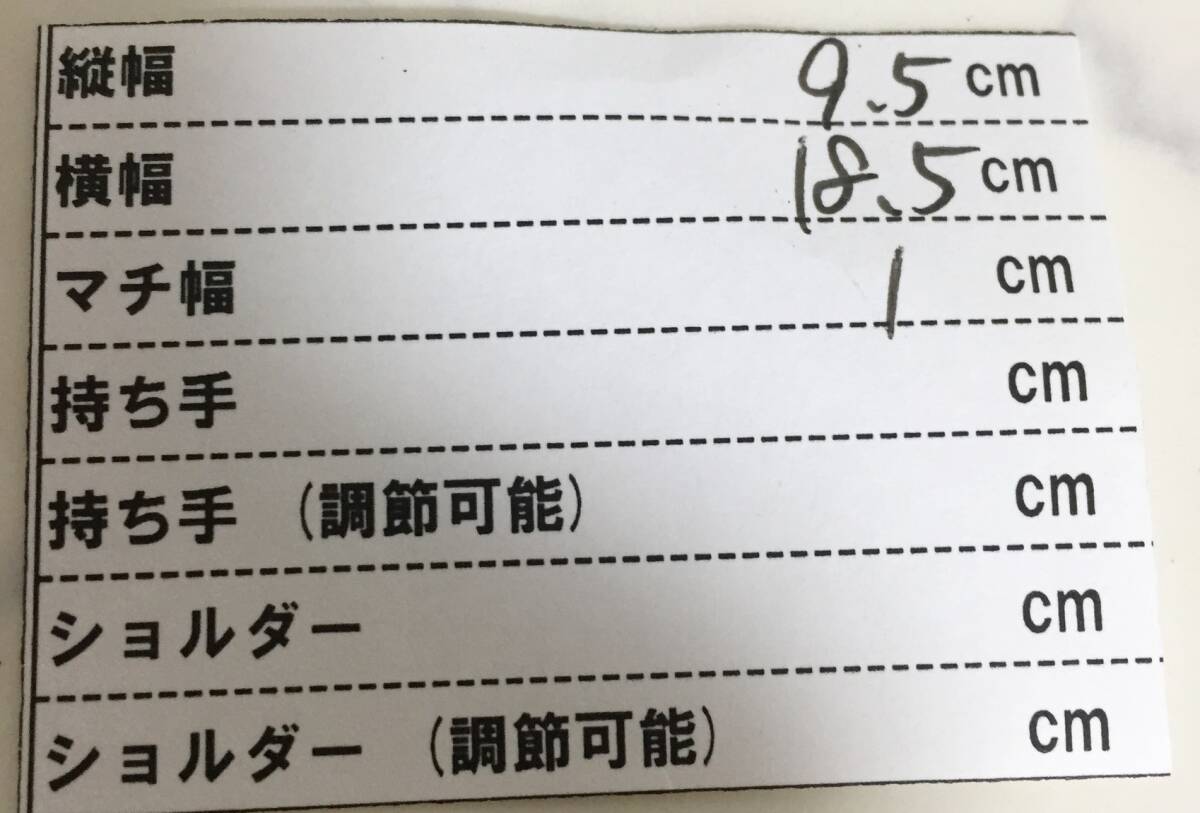 縦幅 9.5 cm
横幅 18.5 cm
マチ幅 1 cm
持ち手 cm
持ち手 (調節可能) cm
ショルダー cm
ショルダー (調節可能) cm